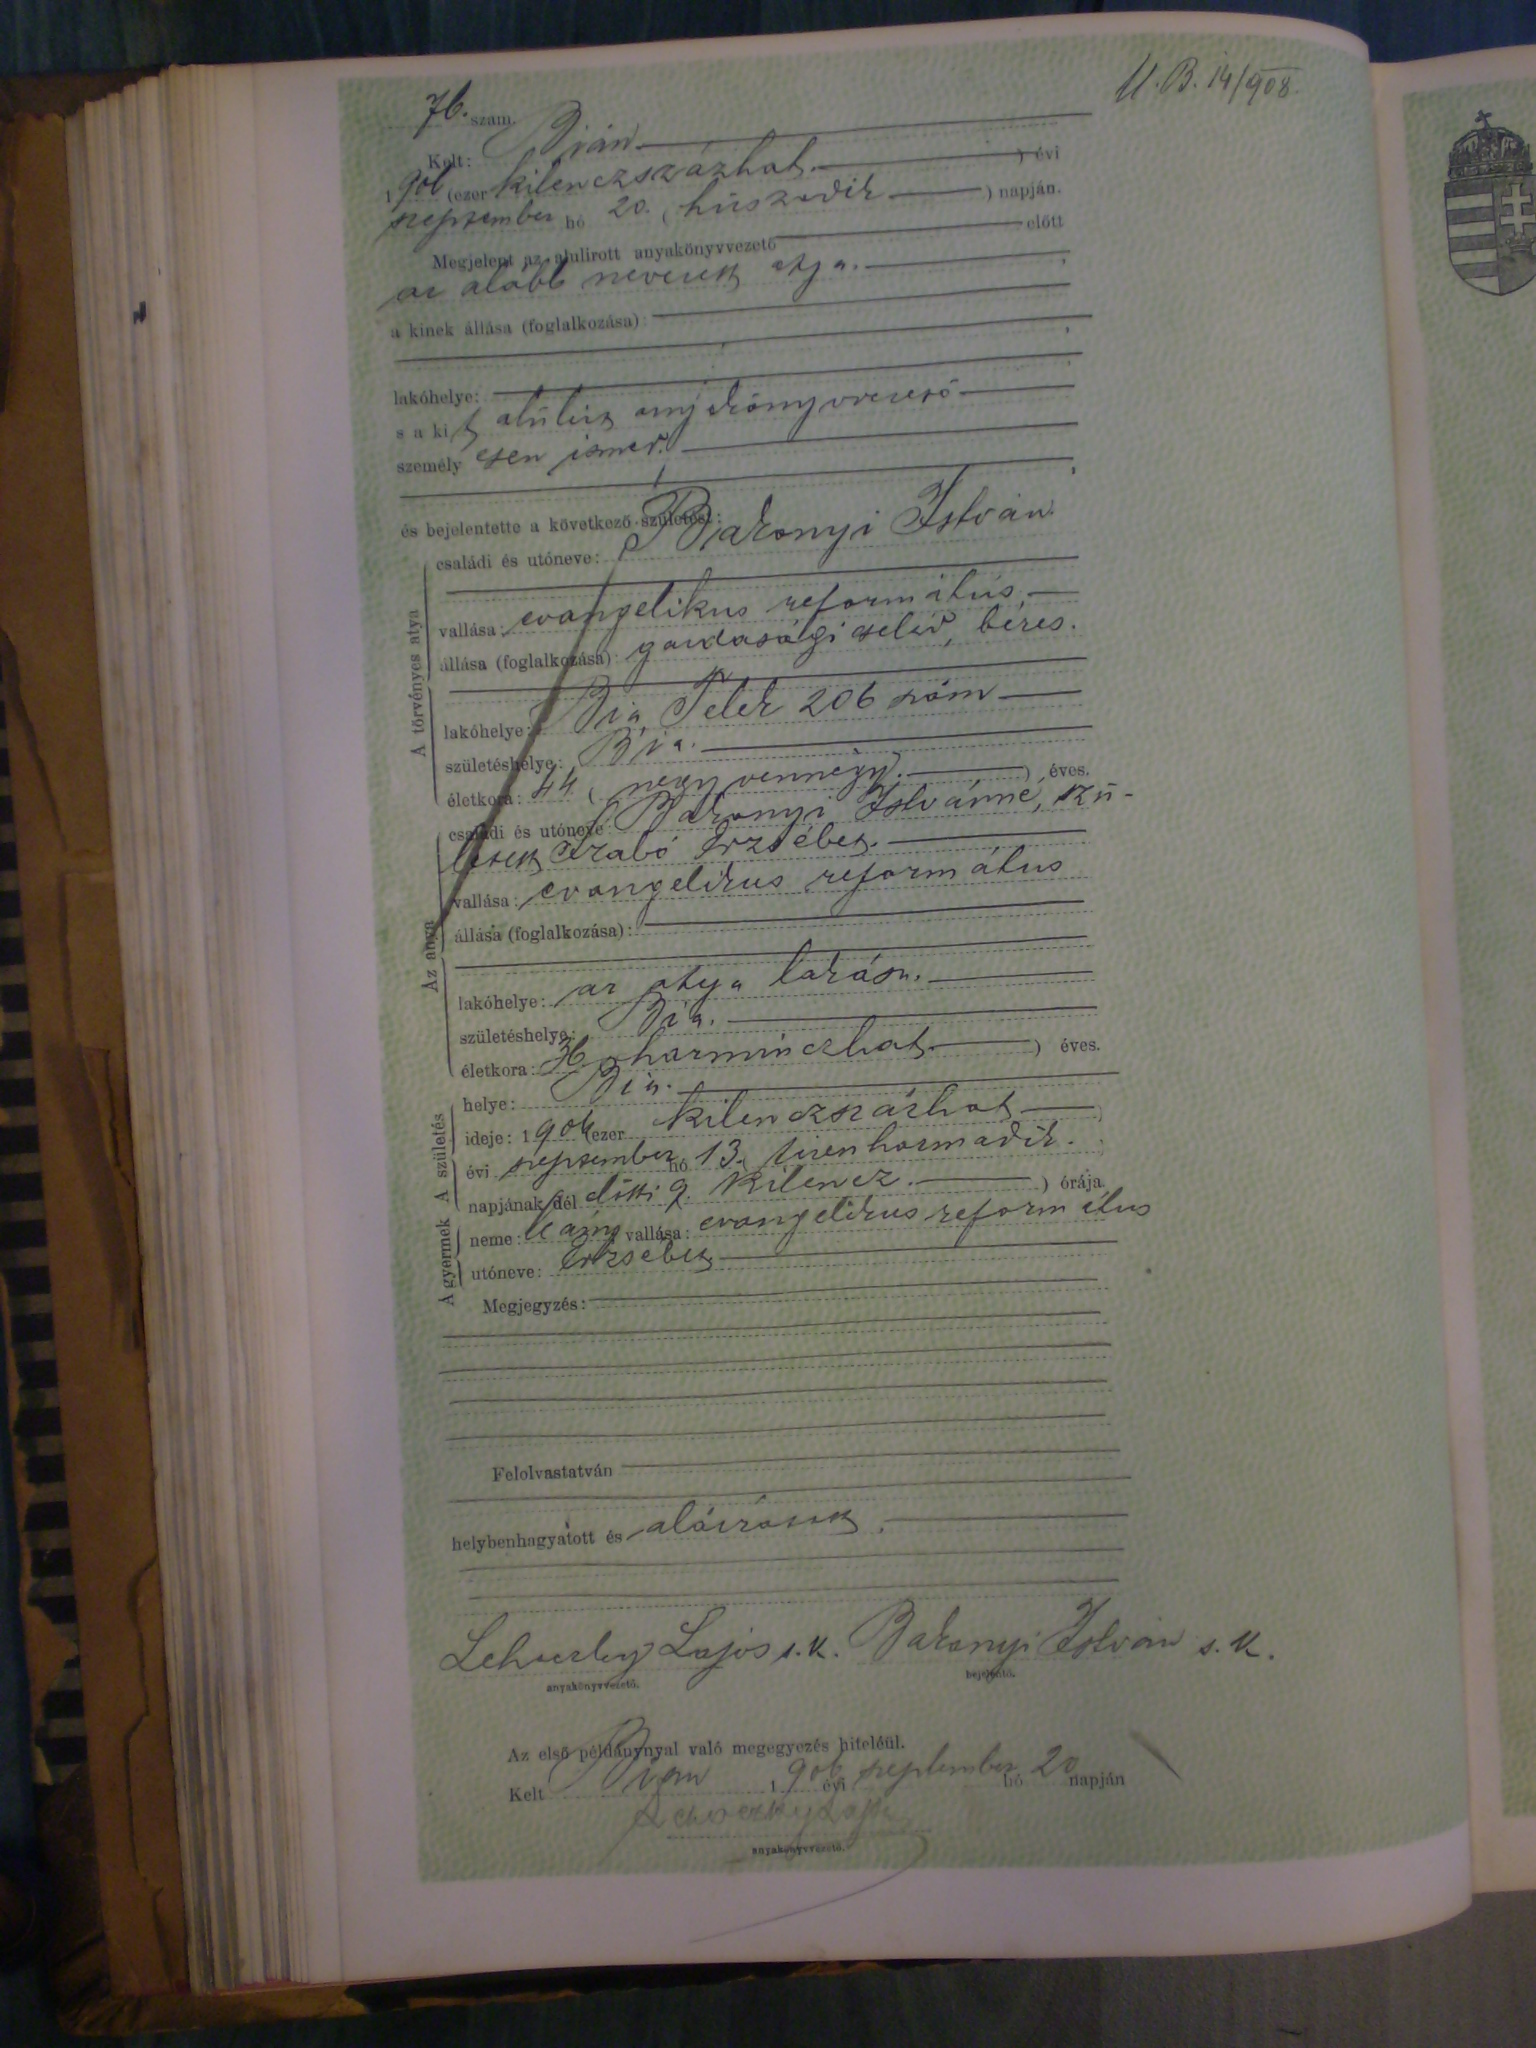 U. B. 14/908.
76. szám.
Kelt: Bián
1906 (ezer kilenczszázhat. ) évi
szeptember hó 20. (huszadik ) napján.
Megjelent az alulirott anyakönyvvezető előtt
az alább nevezett atya.
a kinek állása (foglalkozása):
lakóhelye:
s a kit alulirt anyakönyvvezető
személyesen ismer.
és bejelentette a következő születést:
A törvényes atya
családi és utóneve: Bakonyi István.
vallása: evangelikus református,
állása (foglalkozása): gazdasági cseléd, béres.
lakóhelye: Bia, Telek 206 szám
születéshelye: Bia.
életkora: 44 (negyvennégy. ) éves.
Az anya
családi és utóneve: Bakonyi Istvánné, szü-
letett Szabó Erzsébet.
vallása: evangelikus református
állása (foglalkozása):
lakóhelye: az atya lakása.
születéshelye: Bia.
életkora: 36 (harminczhat. ) éves.
A születés
helye: Bia.
ideje: 1906 (ezer kilenczszázhat )
évi szeptember hó 13. (tizenharmadik.
napjának dél előtti 9. (kilencz. ) órája.
A gyermek
neme: leány vallása: evangelikus református
utóneve: Erzsébet
Megjegyzés:
Felolvastatván
helybenhagyatott és aláíratott.
Lehoczky Lajos s. k. Bakonyi István s. k.
anyakönyvvezető. bejelentő.
Az első példánynyal való megegyezés hiteléül.
Kelt Bián 1906 évi szeptember hó 20 napján
Lehoczky Lajos
anyakönyvvezető.